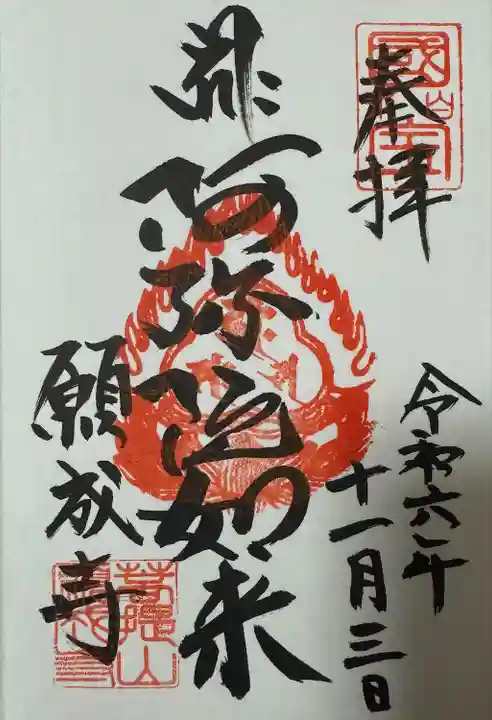 奉拝
國宝
令和六年
十一月三日
阿弥陀如来
願成寺